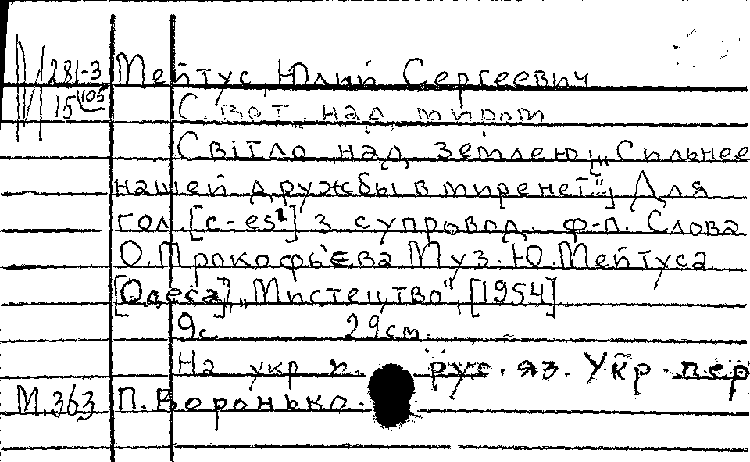 М 281-3 Мейтус, Юлий Сергеевич
15 405 Свет над миром
Світло над землею „Сильнее
нашей дружбы в мире нет". Для
гол. [c-es¹] з супровод. ф-п. Слова
О. Прокоф'єва Муз. Ю. Мейтуса
[Одеса] „Мистецтво", [1954]
9с 29см.
На укр и рус. яз. Укр. пер
М.363 П. Воронько.